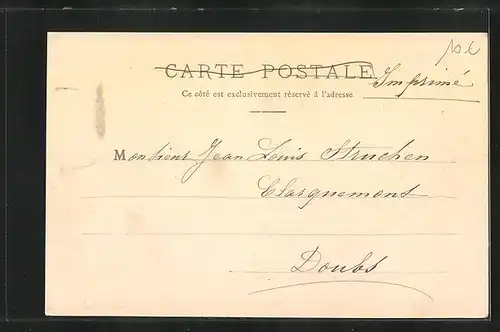 CARTE POSTALE
Imprimé
Ce côté est exclusivement réservé à l'adresse
Monsieur Jean Louis Struchen
Clasquemont
Doubs